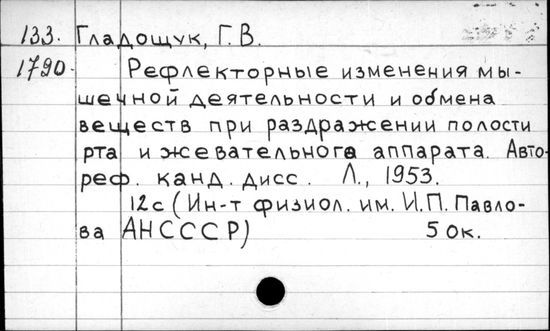 133. Гладощук, Г.В.
1790. Рефлекторные изменения мы-
шечной деятельности и обмена
веществ при раздражении полости
рта и жевательного аппарата. Авто-
реф. канд. дисс. Л., 1953.
12с (Ин-т физиол. им. И.П. Павло-
ва АНСССР) 5 ок.